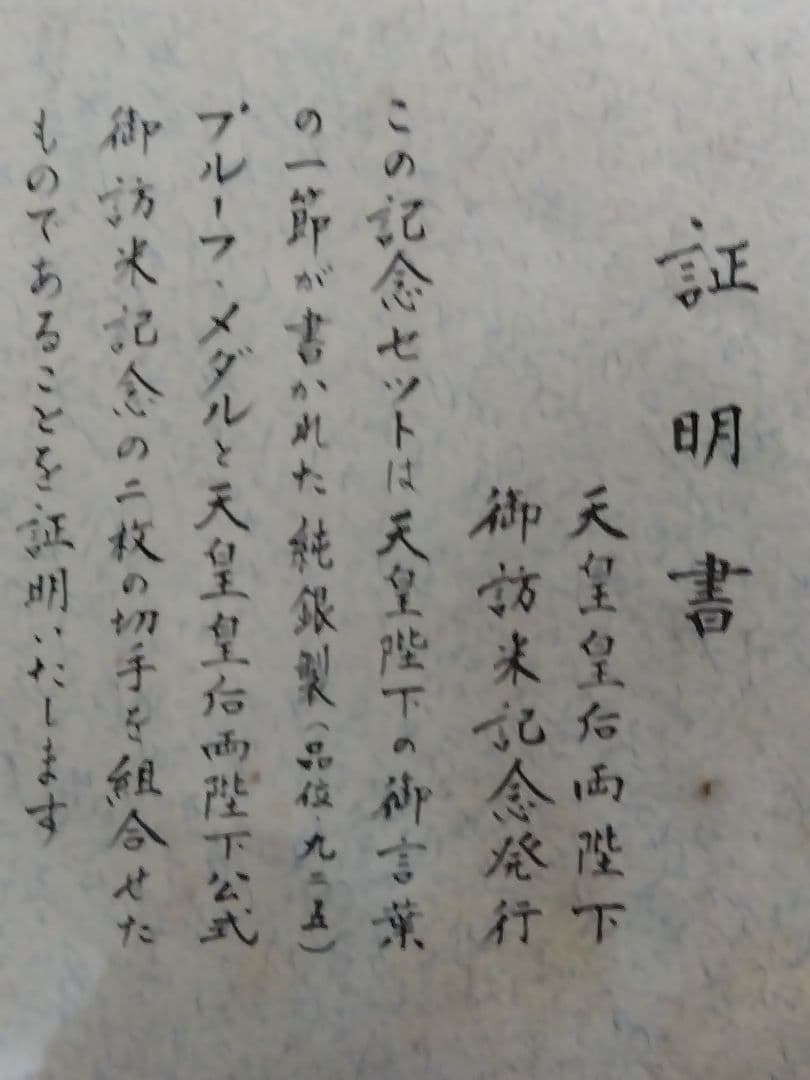 証明書
天皇皇后両陛下
御訪米記念発行
この記念セットは天皇陛下の御言葉
の一節が書かれた純銀製(品位・九二五)
プルーフ・メダルと天皇皇后両陛下公式
御訪米記念の二枚の切手を組合せた
ものであることを証明いたします